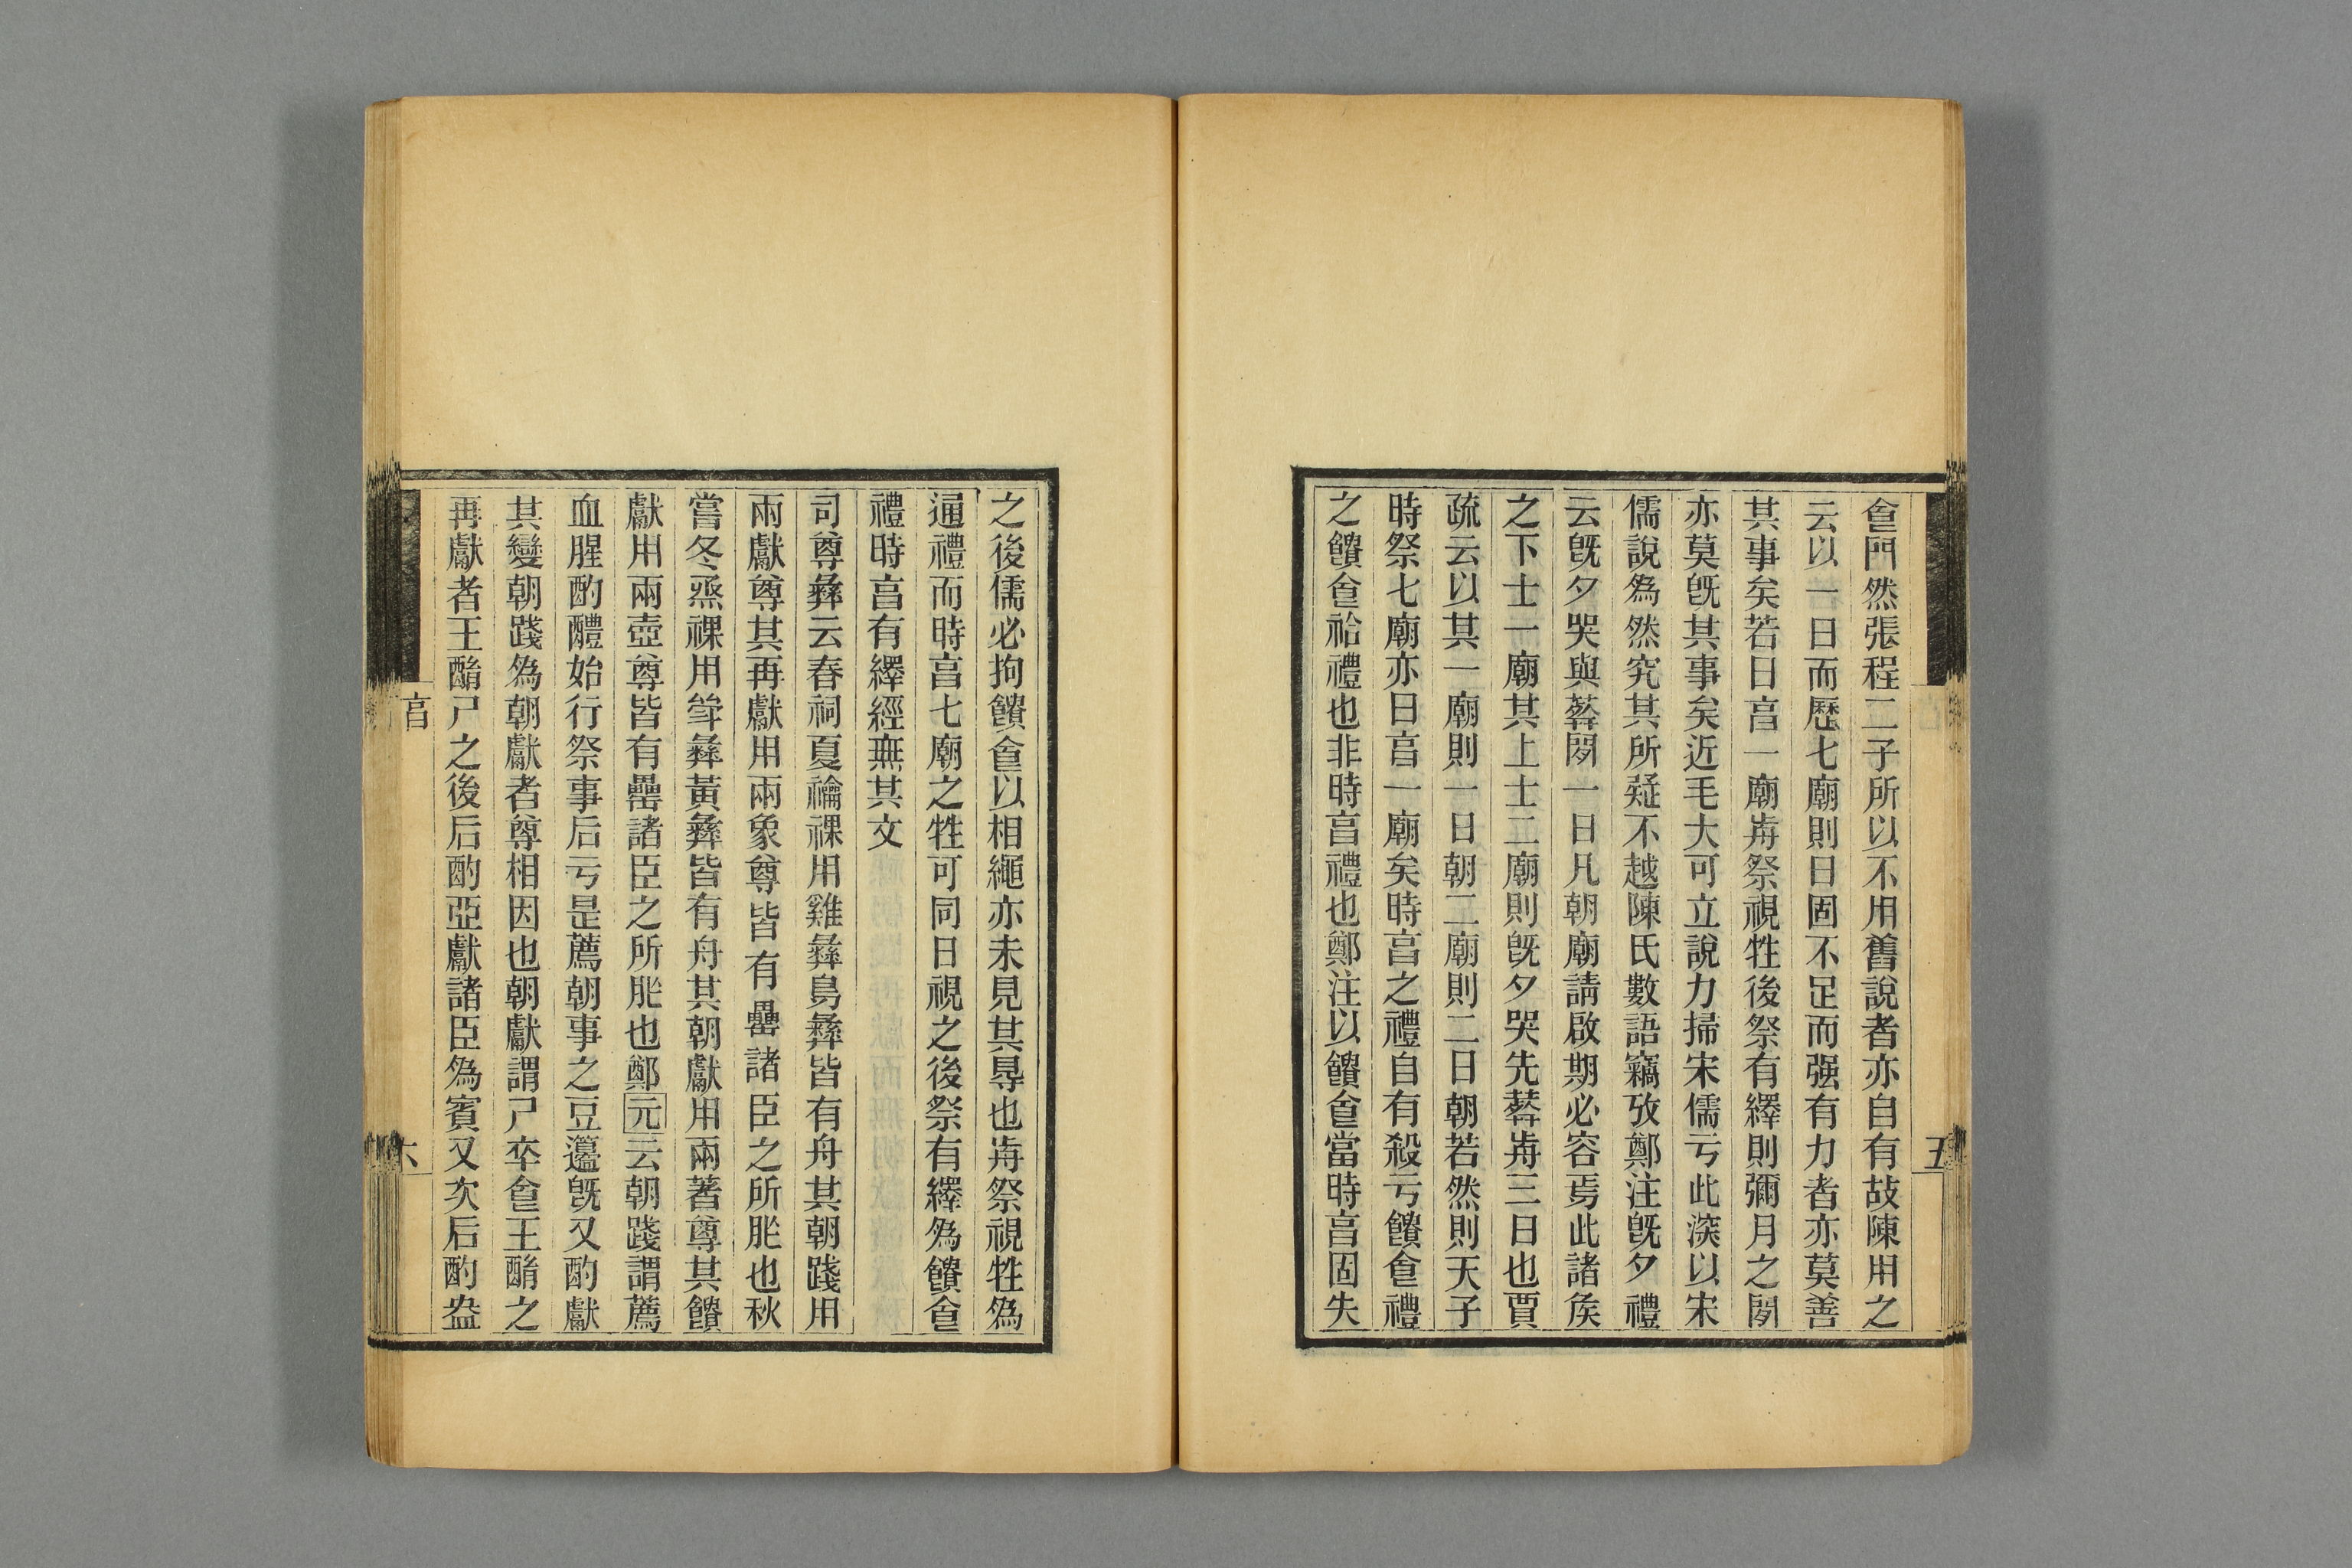 會門然張程二子所以不用舊說者亦自有故陳用之
云以一日而歷七廟則日固不足而强有力者亦莫善
其事矣若日亯一廟歬祭視牲後祭有繹則彌月之閒
亦莫旣其事矣近毛大可立說力掃宋儒亏此湥以宋
儒說爲然究其所疑不越陳氏數語竊攷鄭注旣夕禮
云旣夕哭與葬閒一日凡朝廟請啟期必容焉此諸矦
之下士一廟其上士二廟則旣夕哭先葬歬三日也賈
疏云以其一廟則一日朝二廟則二日朝若然則天子
時祭七廟亦日亯一廟矣時亯之禮自有殺亏饋㑹禮
之饋㑹祫禮也非時亯禮也鄭注以饋㑹當時亯固失
五
之後儒必拘饋㑹以相繩亦未見其㝵也歬祭視牲爲
通禮而時亯七廟之牲可同日視之後祭有繹爲饋㑹
禮時亯有繹經無其文
司尊彝云春祠夏禴祼用雞彝鳥彝皆有舟其朝踐用
兩獻尊其再獻用兩象尊皆有罍諸臣之所胙也秋
嘗冬烝祼用斝彝黃彝皆有舟其朝獻用兩著尊其饋
獻用兩壺尊皆有罍諸臣之所胙也鄭元云朝踐謂薦
血腥酌醴始行祭事后亏是薦朝事之豆籩旣又酌獻
其變朝踐爲朝獻者尊相因也朝獻謂尸卒㑹王酳之
再獻者王酳尸之後后酌亞獻諸臣爲賓又次后酌盎
亯
六